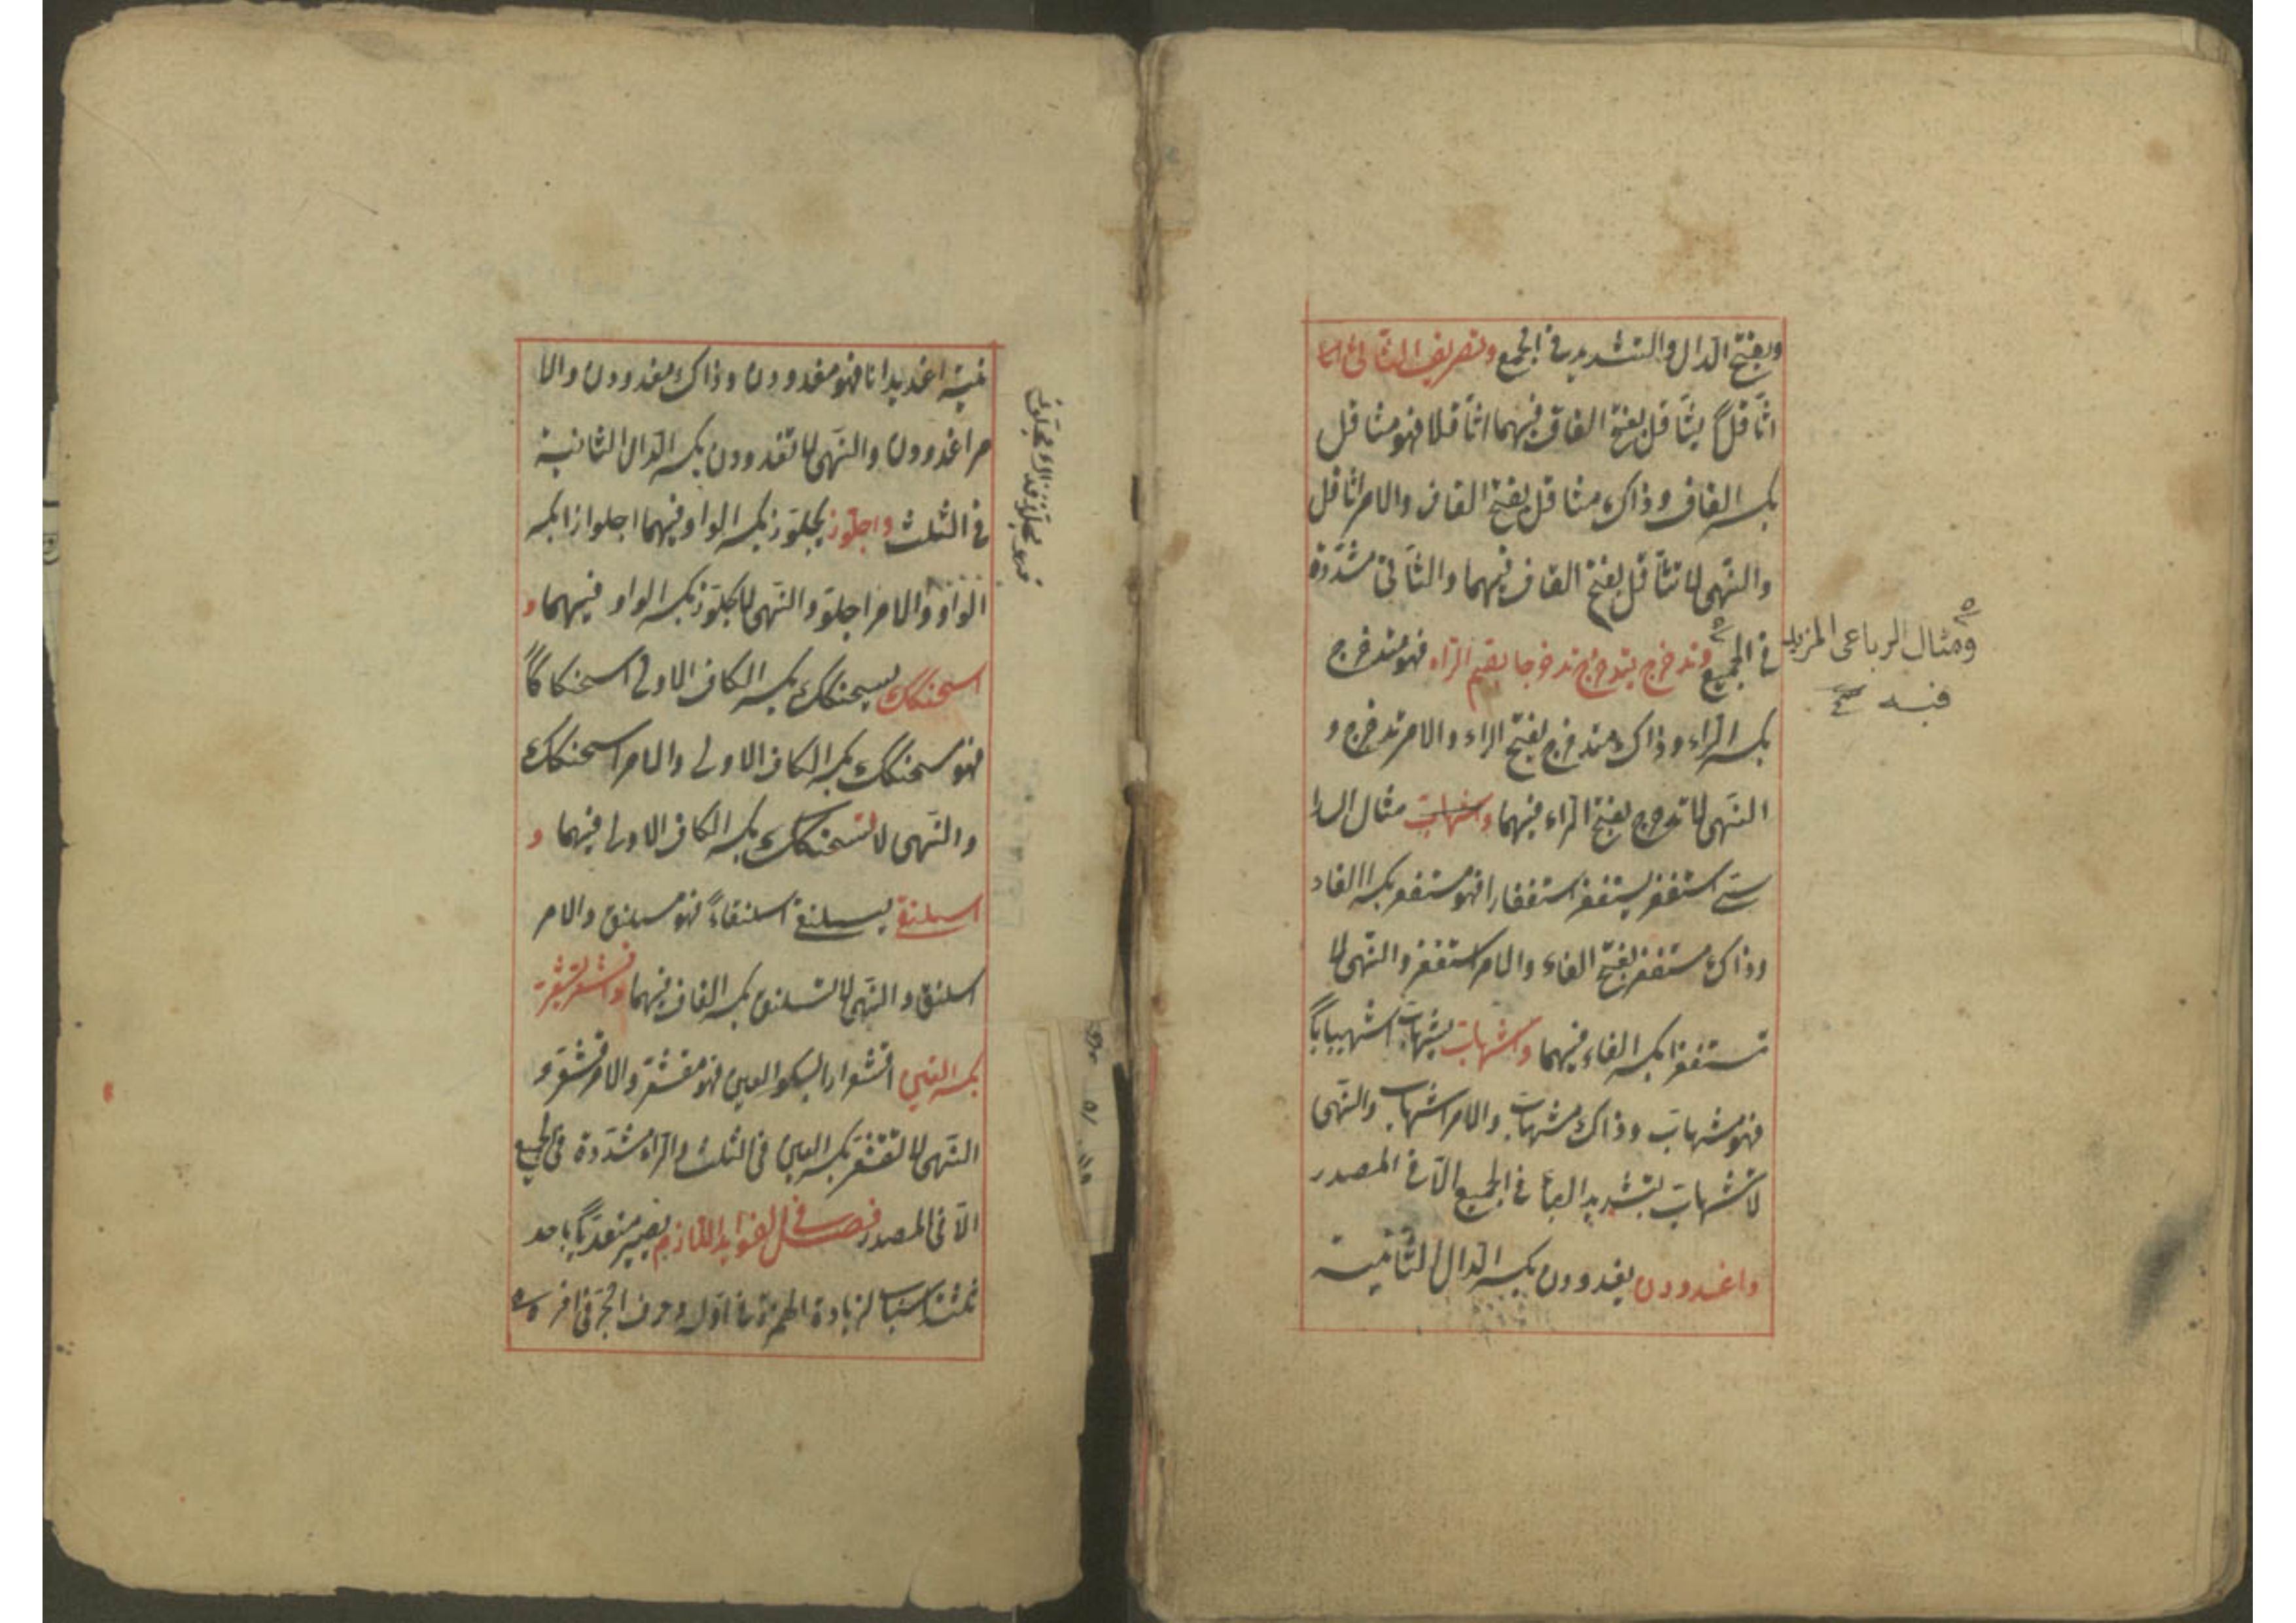 وبفتح الدال والتشديد في الجمع وتصريف الثاني اثا
اثّاقل يثّاقل بفتح القاف فيهما اثّاقلا فهو مثاقل
بكسر القاف وذاك مثاقل بفتح القاف والامر اثاقل
والنهى لا تثّاقل بفتح القاف فيهما والثانى مشدّدة
في الجميع وتدحرج يتدحرج تدحرجا بضم الراء فهو متدحرج
بكسر الراء وذاك متدحرج بفتح الراء والامر تدحرج و
النهى لا تدحرج بفتح الراء فيهما واشهابّ مثال السدا
سى استغفر يستغفر استغفارا فهو مستغفر بكسر الفاء
وذاك مستغفر بفتح الفاء والامر استغفر والنهى لا
تستغفر بكسر الفاء فيهما واشهابّ يشهابّ اشهيبابًا
فهو مشهابّ وذاك مشهابّ والامر اشهابّ والنهى
لا تشهابّ بتشديد الباء في الجميع الّا في المصدر
واغدودن يغدودن بكسر الدال الثانية
ومثال الرباعى المزيد
فيه صح
نية اغديدانا فهو مغدودن وذاك مغدودن والا
مر اغدودن والنهى لا تغدودن بكسر الدال الثانية
في الثلث واجلوّز يجلوّز بكسر الواو فيهما اجلوازا بكسر
الواو والامر اجلوّز والنهى لا تجلوّز بكسر الواو فيهما و
اسحنكك يسحنكك بكسر الكاف الاولى اسحنكاكًا
فهو مسحنكك بكسر الكاف الاولى والامر اسحنكك
والنهى لا تسحنكك بكسر الكاف الاولى فيهما و
اسلنقى يسلنقى اسلنقاءً فهو مسلنق والامر
اسلنق والنهى لا تسلنق بكسر القاف فيهما واقشعرّ يقشعرّ
بكسر العين اقشعرارا بسكون العين فهو مقشعرّ والامر اقشعرّ و
النهى لا تقشعرّ بكسر العين فى الثلث والراء مشدّدة فى الجميع
الّا فى المصدر فصل فى الفوايد اللازم يصير متعدّيًا باحد
ثلثة اسباب بزيادة الهمزة فى اوّله وحرف الجرّ فى اخره